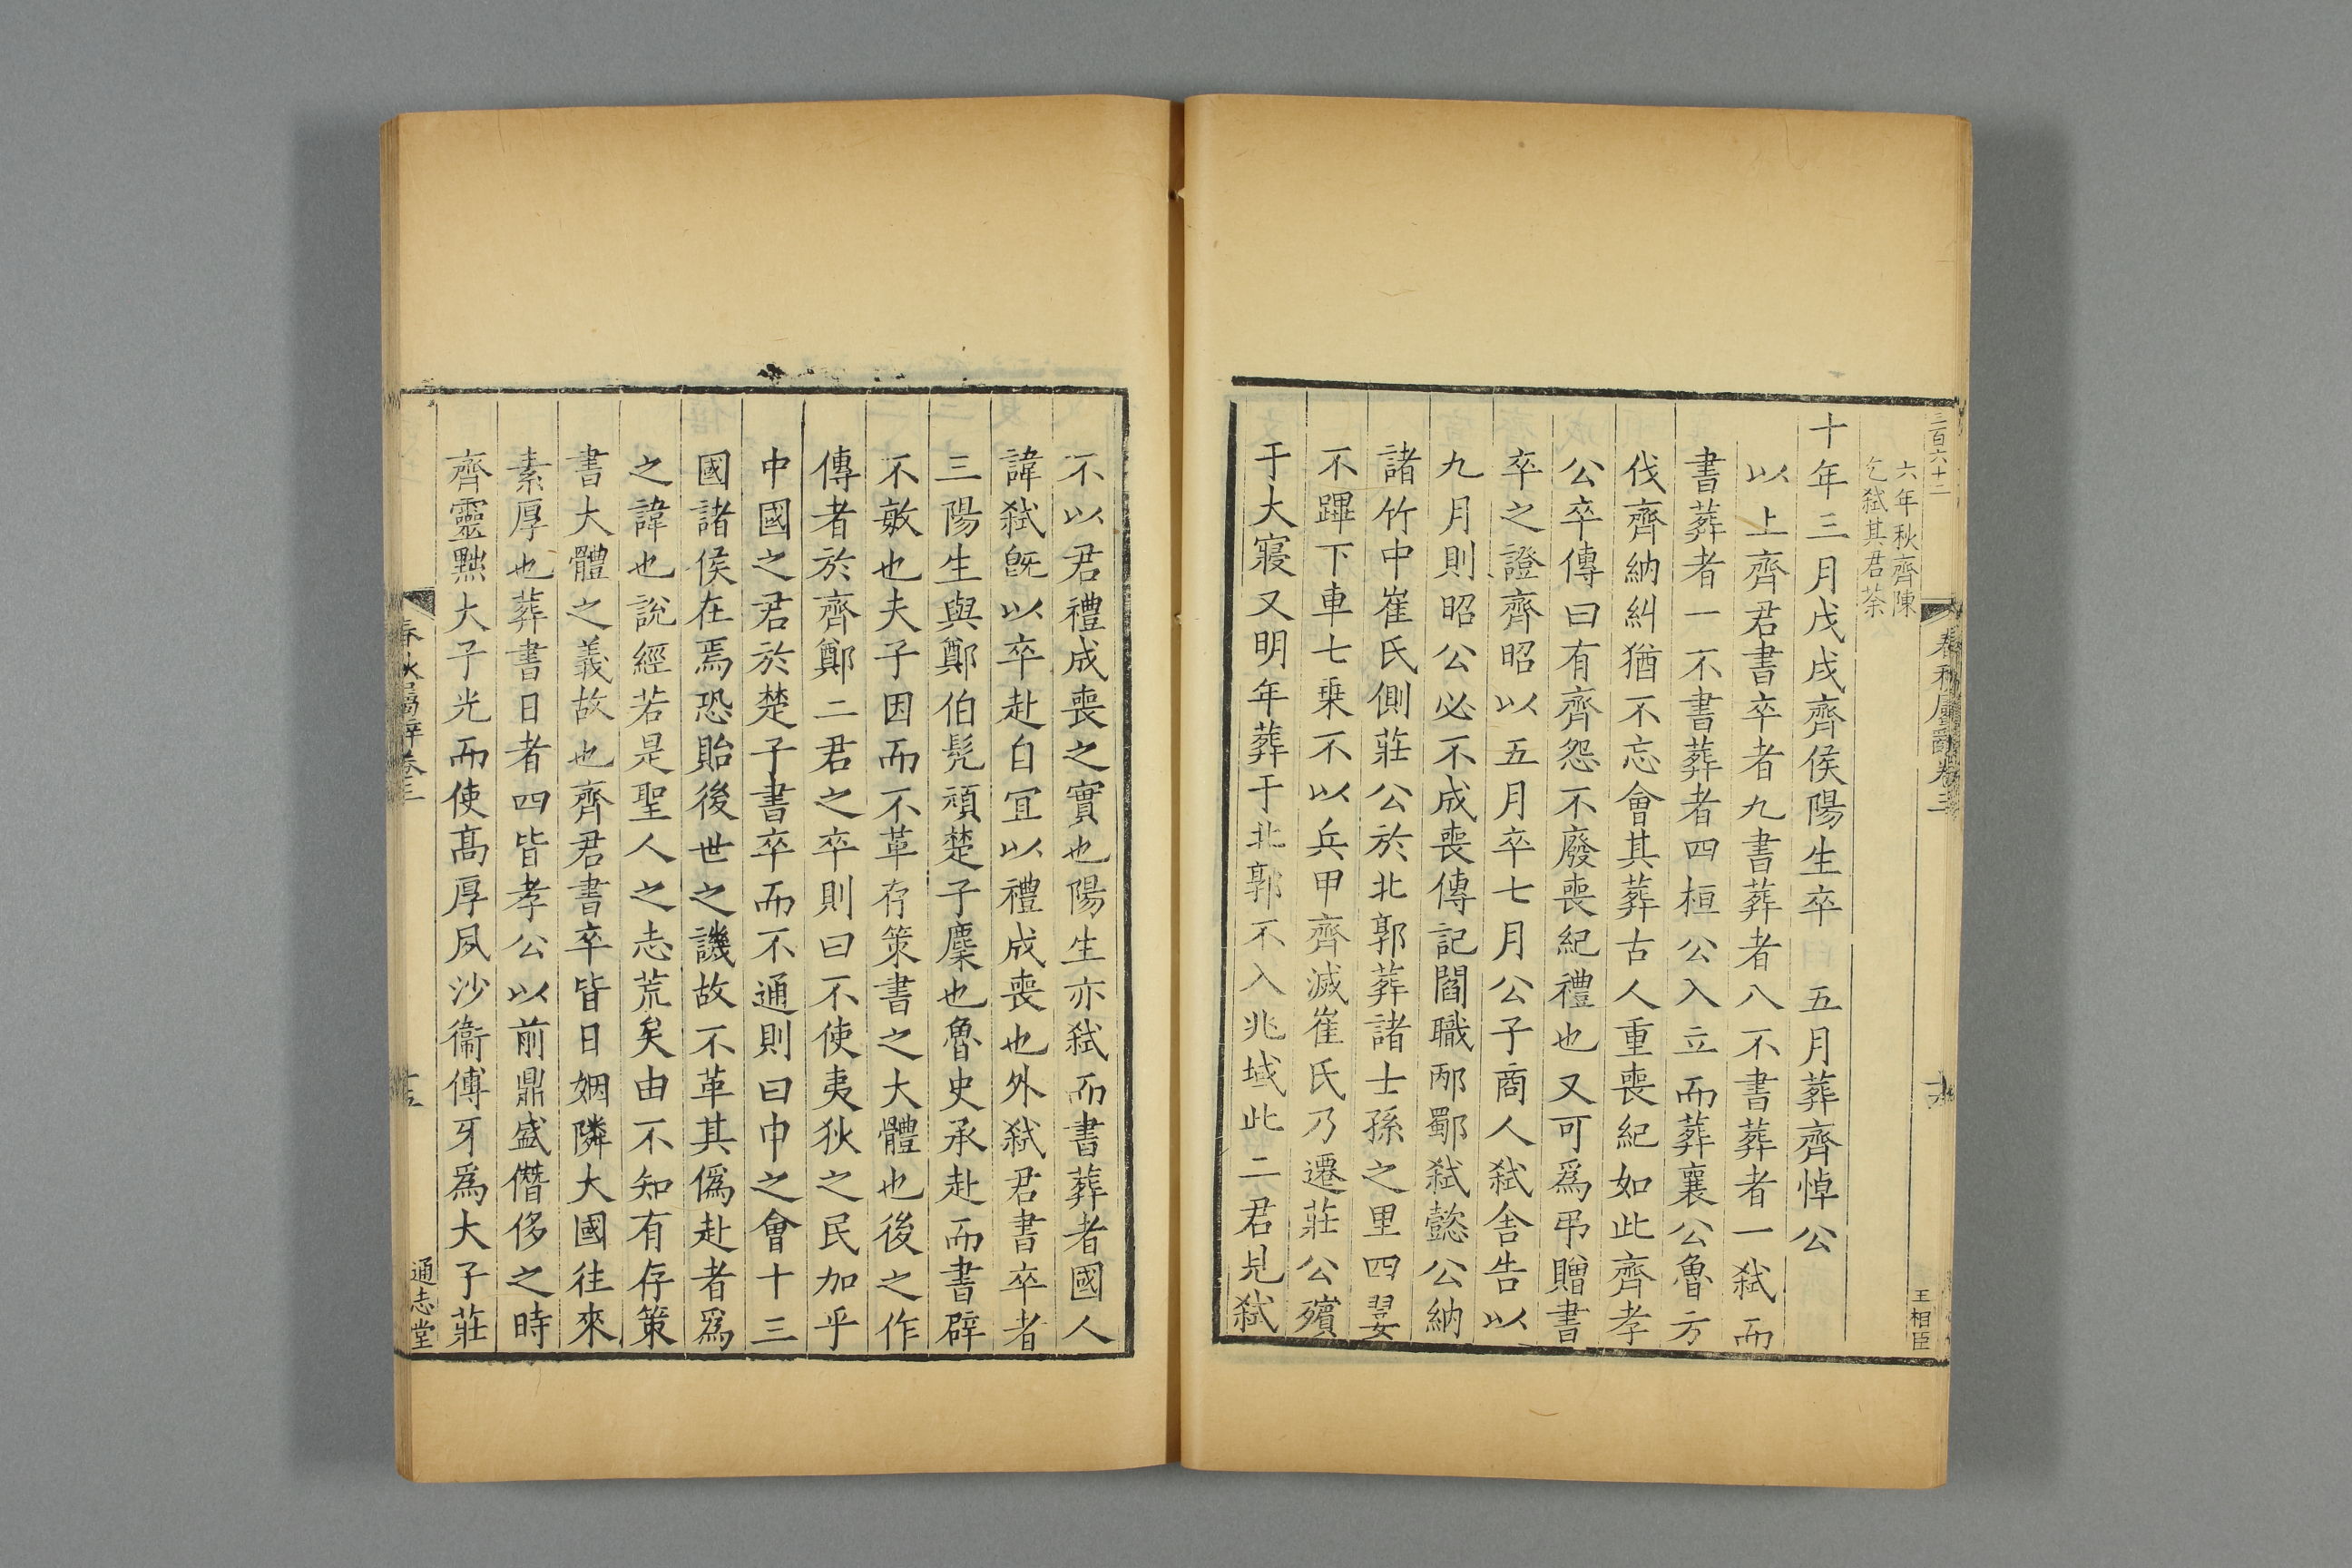 三百六十二
春秋屬辭卷三
王相臣
六年秋齊陳
乞弑其君荼
十年三月戊戌齊侯陽生卒 五月葬齊悼公
以上齊君書卒者九書葬者八不書葬者一弑而
書葬者一不書葬者四桓公入立而葬襄公魯方
伐齊納糾猶不忘會其葬古人重喪紀如此齊孝
公卒傳曰有齊怨不廢喪紀禮也又可爲弔贈書
卒之證齊昭以五月卒七月公子商人弑舍告以
九月則昭公必不成喪傳記閻職邴歜弑懿公納
諸竹中崔氏側莊公於北郭葬諸士孫之里四翣
不蹕下車七乗不以兵甲齊滅崔氏乃遷莊公殯
于大寢又明年葬于北郭不入兆域此二君見弑
不以君禮成喪之實也陽生亦弑而書葬者國人
諱弑旣以卒赴自宜以禮成喪也外弑君書卒者
三陽生與鄭伯髡頑楚子麇也魯史承赴而書辟
不敏也夫子因而不革存策書之大體也後之作
傳者於齊鄭二君之卒則曰不使夷狄之民加乎
中國之君於楚子書卒而不通則曰中之會十三
國諸侯在焉恐貽後世之譏故不革其僞赴者爲
之諱也說經若是聖人之志荒矣由不知有存策
書大體之義故也齊君書卒皆日姻隣大國往來
素厚也葬書日者四皆孝公以前鼎盛僭侈之時
齊靈黜大子光而使高厚夙沙衞傅牙爲大子莊
春秋屬辭卷三
通志堂